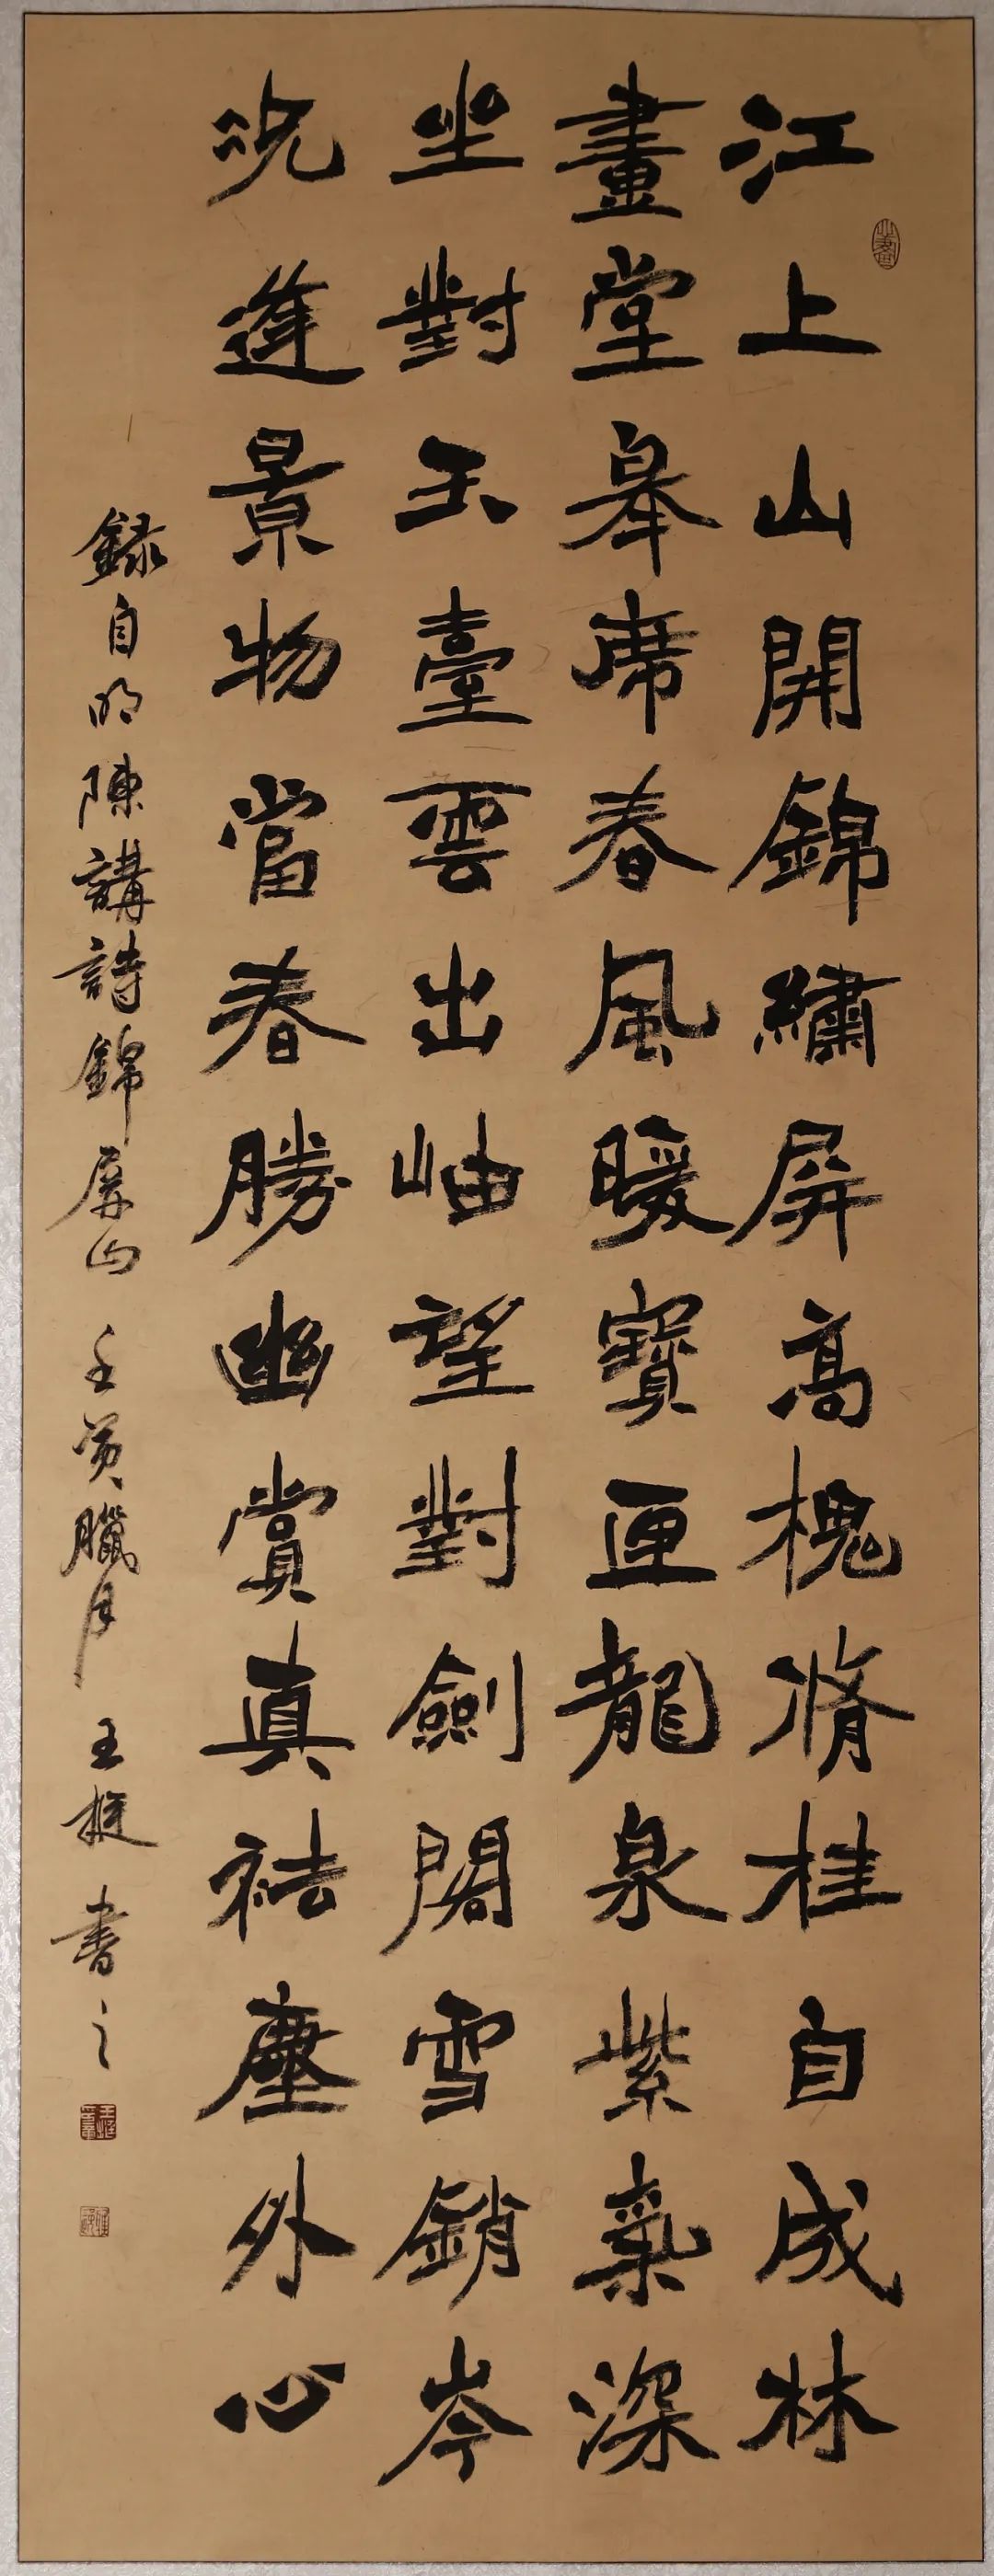 江上山開錦繡屏高槐脩桂自成林
畫堂皋席春風暖寶匣龍泉紫氣深
坐對玉臺雲出岫望對劍閣雪銷岑
況逢景物當春勝幽賞真祛塵外心
錄自明陳講詩錦屏山 壬寅臘月 王 書之